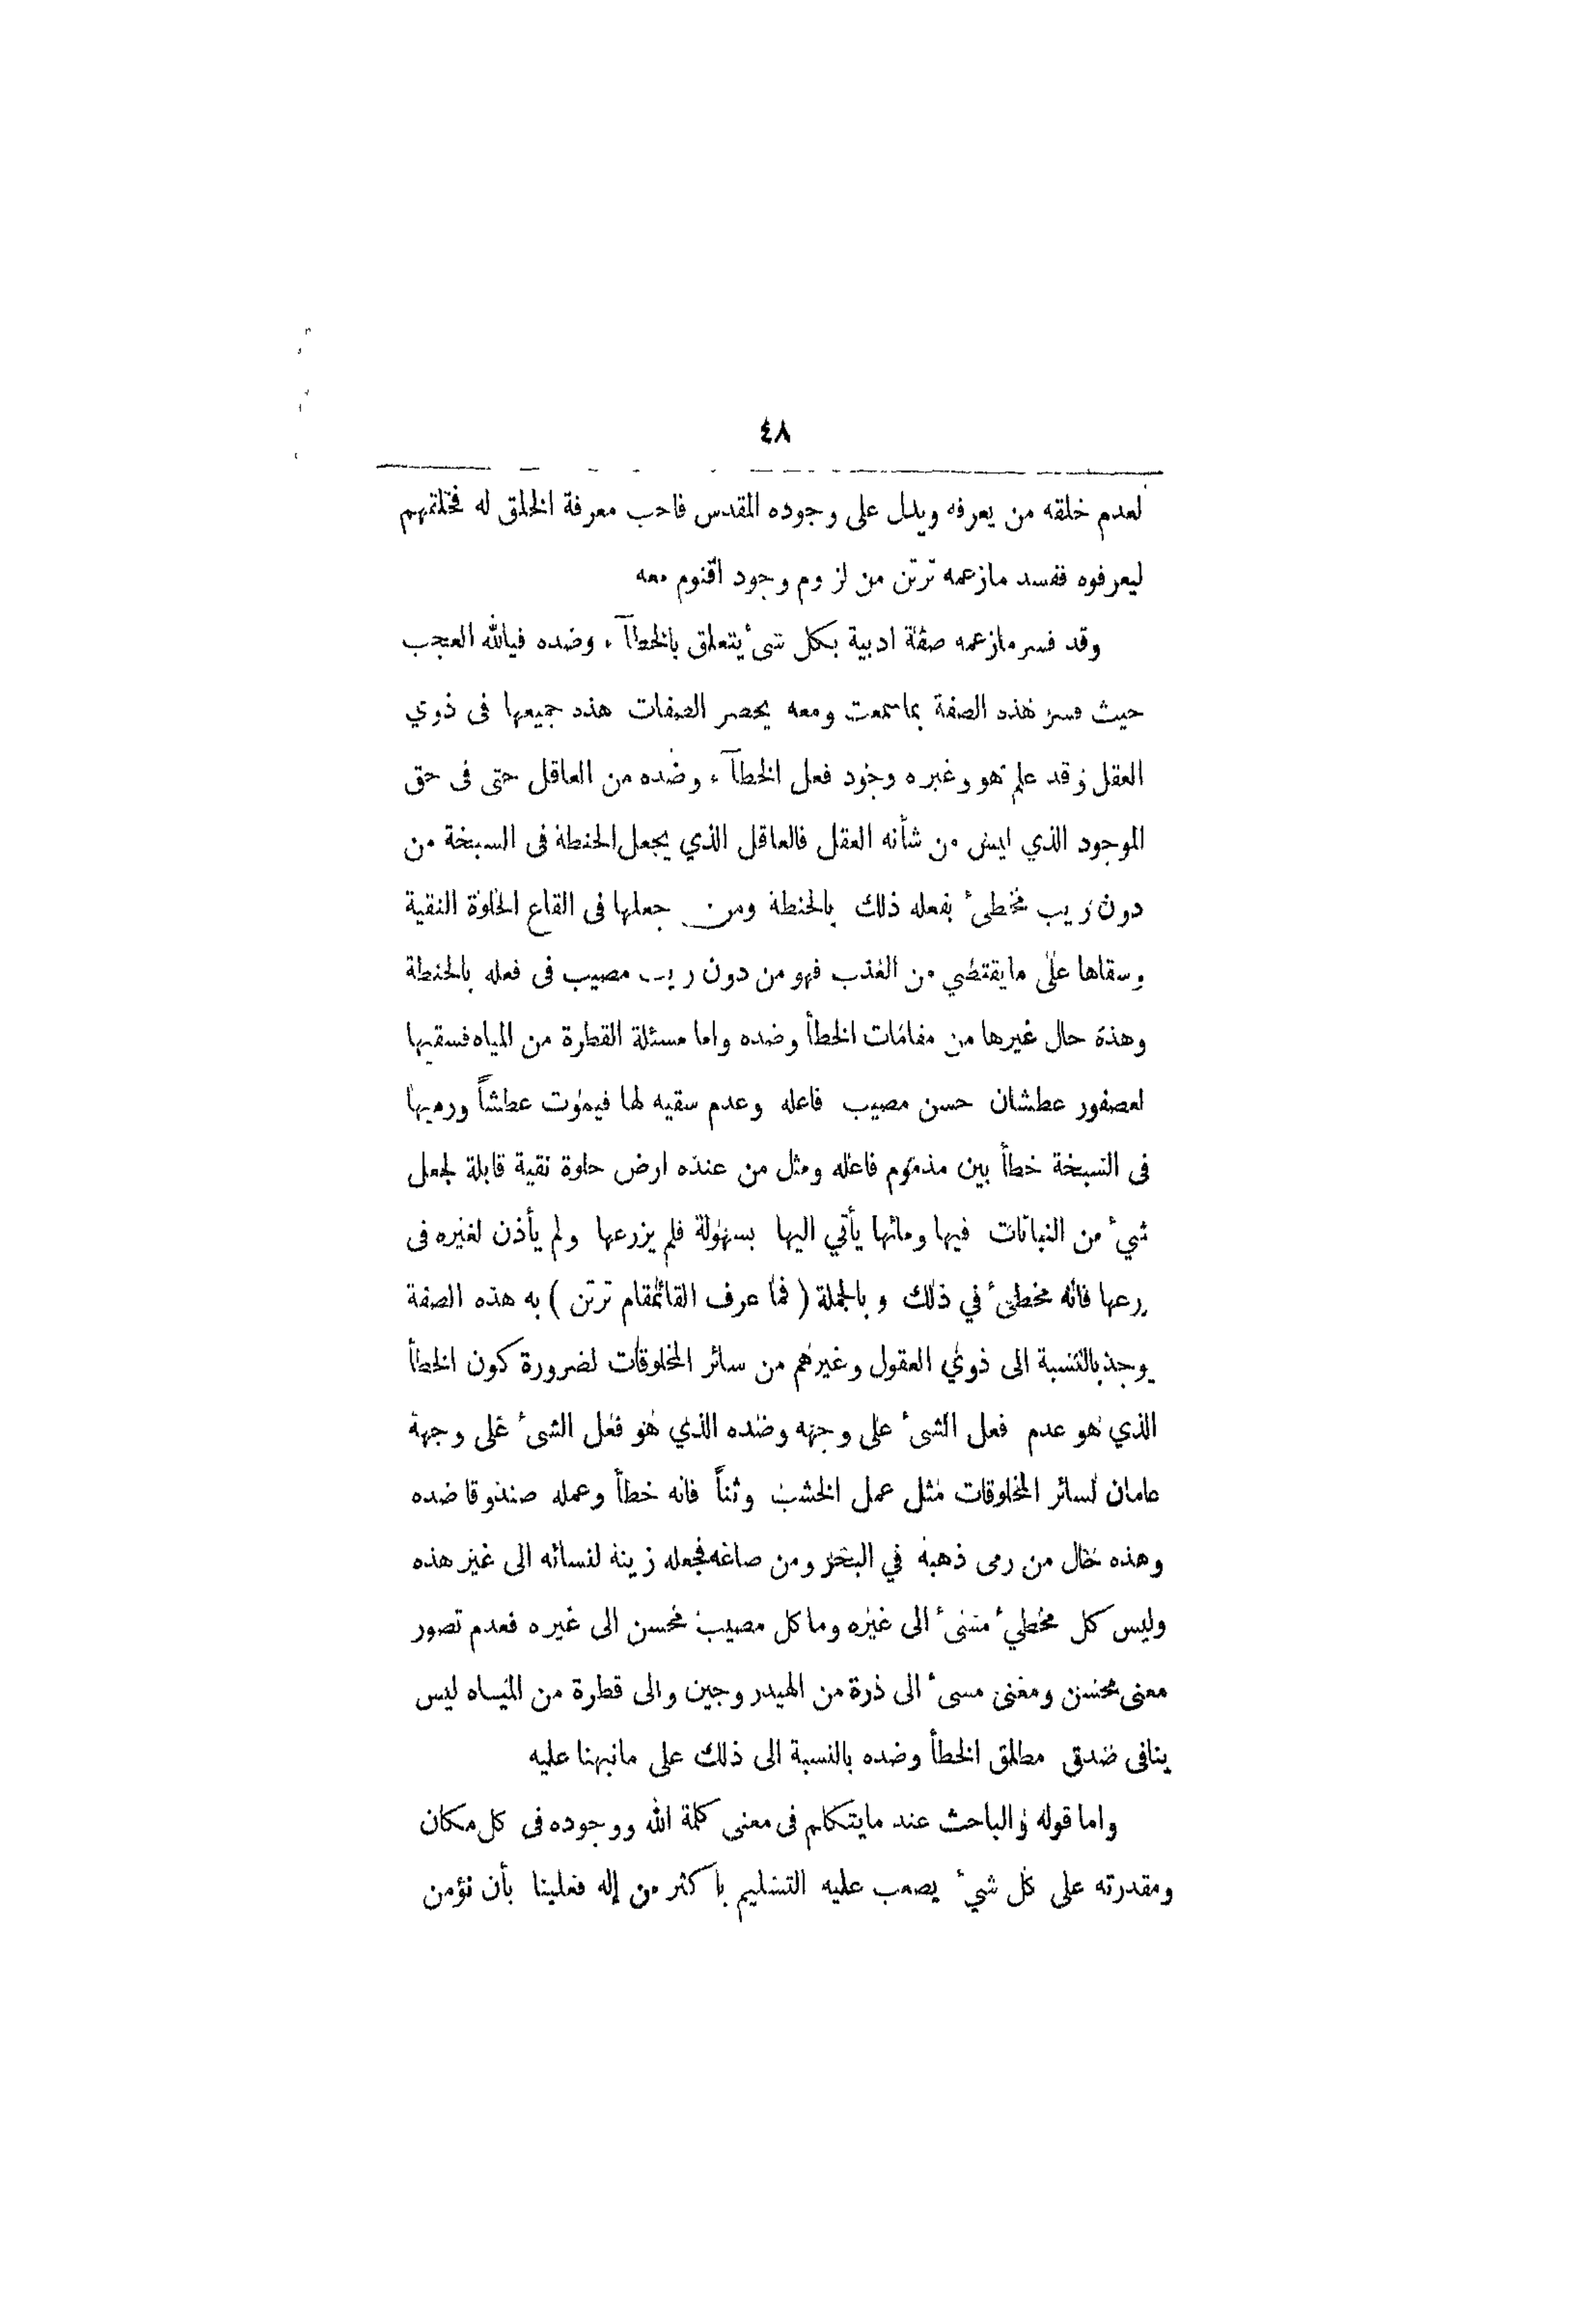 ٤٨
لعدم خلقه من يعرفه ويدل على وجوده المقدس فاحب معرفة الخلق له فخلقهم
ليعرفوه ففسد مازعمه ترتن من لزوم وجود اقنوم معه
وقد فسر مازعمه صفة ادبية بكل شئ يتعلق بالخطآء وضده فيالله العجب
حيث فسر هذه الصفة بما سمعت ومعه يحصر الصفات هذه جميعها فى ذوي
العقل وقد علم هو وغيره وجود فعل الخطآء وضده من العاقل حتى فى حق
الموجود الذي ليس من شأنه العقل فالعاقل الذي يجعل الحنطة فى السبخة من
دون ريب مخطئ بفعله ذلك بالحنطة ومن جعلها فى القاع الحلوة النقية
وسقاها على مايقتضي من العذب فهو من دون ريب مصيب فى فعله بالحنطة
وهذه حال غيرها من مقامات الخطأ وضده واما مسئلة القطرة من المياه فسقيها
لعصفور عطشان حسن مصيب فاعله وعدم سقيه لها فيموت عطشاً ورميها
فى السبخة خطأ بين مذموم فاعله ومثل من عنده ارض حلوة نقية قابلة لجعل
شيء من النباتات فيها ومائها يأتي اليها بسهولة فلم يزرعها ولم يأذن لغيره فى
زرعها فانه مخطئ في ذلك وبالجملة ( فما عرف القائمقام ترتن ) به هذه الصفة
يوجد بالنسبة الى ذوي العقول وغيرهم من سائر المخلوقات لضرورة كون الخطأ
الذي هو عدم فعل الشئ على وجهه وضده الذي هو فعل الشئ على وجهة
عامان لسائر المخلوقات مثل عمل الخشب وثناً فانه خطأ وعمله صندوقا ضده
وهذه حال من رمى ذهبه في البحر ومن صاغه فجعله زينة لنسائه الى غير هذه
وليس كل مخطيء مسئ الى غيره وما كل مصيب محسن الى غيره فعدم تصور
معنى محسن ومعنى مسئ الى ذرة من الهيدروجين والى قطرة من المياه ليس
ينافى صدق مطلق الخطأ وضده بالنسبة الى ذلك على مانبهنا عليه
واما قوله والباحث عند مايتكلم فى معنى كلمة الله ووجوده فى كل مكان
ومقدرته على كل شيء يصعب عليه التسليم باكثر من إله فعلينا بأن نؤمن